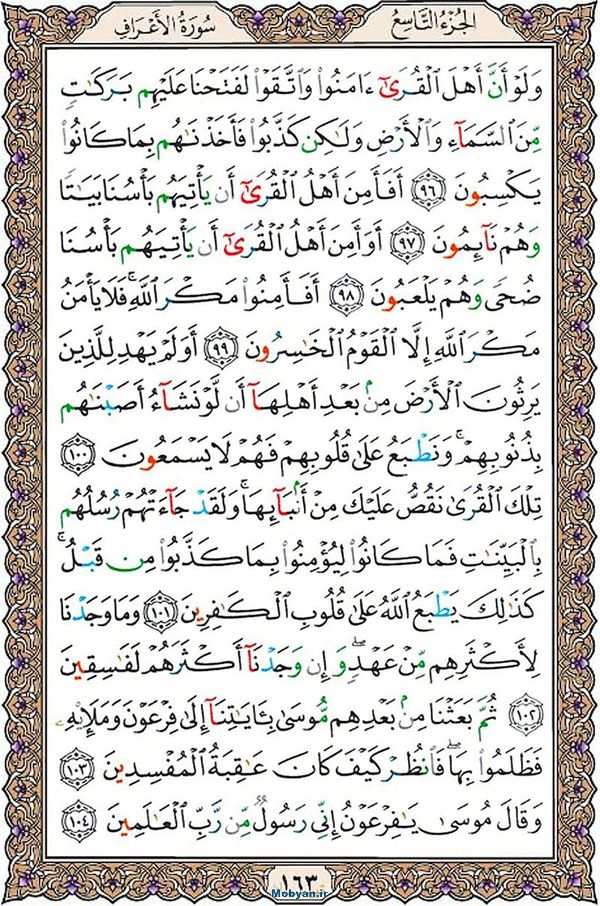 الجزء التاسع
سورة الأعراف
وَلَوْ أَنَّ أَهْلَ ٱلْقُرَىٰٓ ءَامَنُوا۟ وَٱتَّقَوْا۟ لَفَتَحْنَا عَلَيْهِم بَرَكَٰتٍ
مِّنَ ٱلسَّمَآءِ وَٱلْأَرْضِ وَلَٰكِن كَذَّبُوا۟ فَأَخَذْنَٰهُم بِمَا كَانُوا۟
يَكْسِبُونَ ٩٦ أَفَأَمِنَ أَهْلُ ٱلْقُرَىٰٓ أَن يَأْتِيَهُم بَأْسُنَا بَيَٰتًا
وَهُمْ نَآئِمُونَ ٩٧ أَوَأَمِنَ أَهْلُ ٱلْقُرَىٰٓ أَن يَأْتِيَهُم بَأْسُنَا
ضُحًى وَهُمْ يَلْعَبُونَ ٩٨ أَفَأَمِنُوا۟ مَكْرَ ٱللَّهِ ۚ فَلَا يَأْمَنُ
مَكْرَ ٱللَّهِ إِلَّا ٱلْقَوْمُ ٱلْخَٰسِرُونَ ٩٩ أَوَلَمْ يَهْدِ لِلَّذِينَ
يَرِثُونَ ٱلْأَرْضَ مِنۢ بَعْدِ أَهْلِهَآ أَن لَّوْ نَشَآءُ أَصَبْنَٰهُم
بِذُنُوبِهِمْ ۚ وَنَطْبَعُ عَلَىٰ قُلُوبِهِمْ فَهُمْ لَا يَسْمَعُونَ ١٠٠
تِلْكَ ٱلْقُرَىٰ نَقُصُّ عَلَيْكَ مِنْ أَنۢبَآئِهَا ۚ وَلَقَدْ جَآءَتْهُمْ رُسُلُهُم
بِٱلْبَيِّنَٰتِ فَمَا كَانُوا۟ لِيُؤْمِنُوا۟ بِمَا كَذَّبُوا۟ مِن قَبْلُ ۚ
كَذَٰلِكَ يَطْبَعُ ٱللَّهُ عَلَىٰ قُلُوبِ ٱلْكَٰفِرِينَ ١٠١ وَمَا وَجَدْنَا
لِأَكْثَرِهِم مِّنْ عَهْدٍ ۖ وَإِن وَجَدْنَآ أَكْثَرَهُمْ لَفَٰسِقِينَ
١٠٢ ثُمَّ بَعَثْنَا مِنۢ بَعْدِهِم مُّوسَىٰ بِـَٔايَٰتِنَآ إِلَىٰ فِرْعَوْنَ وَمَلَإِي۟هِۦ
فَظَلَمُوا۟ بِهَا ۖ فَٱنظُرْ كَيْفَ كَانَ عَٰقِبَةُ ٱلْمُفْسِدِينَ ١٠٣
وَقَالَ مُوسَىٰ يَٰفِرْعَوْنُ إِنِّى رَسُولٌ مِّن رَّبِّ ٱلْعَٰلَمِينَ ١٠٤
١٦٣
Mobyan.ir